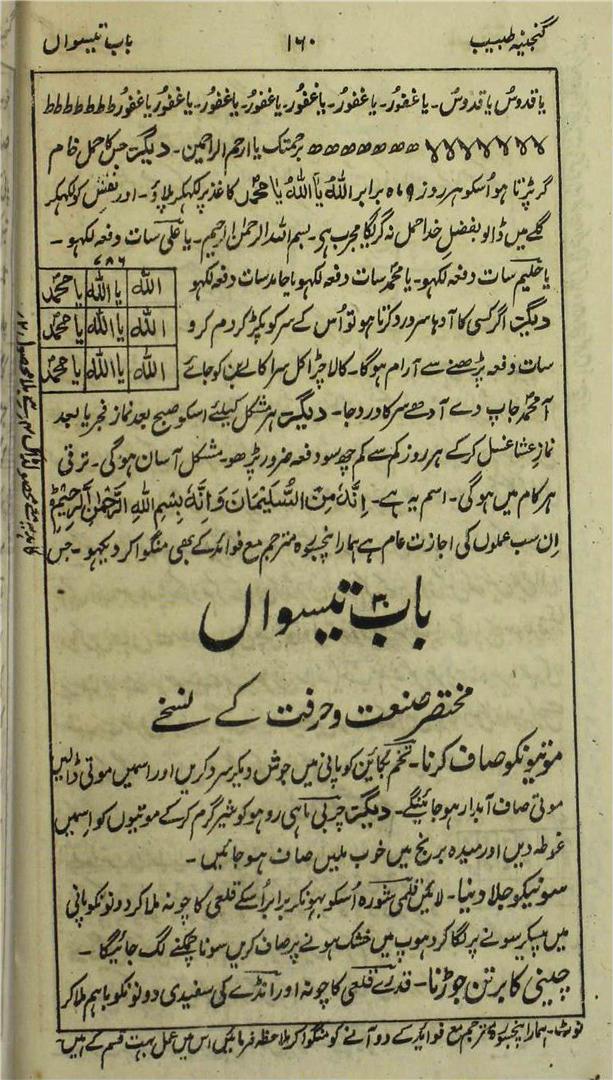 گنجینہ طبیب ۱۶۰ باب تیسواں
یا قدوسُ یا قدوسُ۔ یا غفورُ۔ یا غفورُ۔ یا غفورُ۔ یا غفورُ۔ یا غفورُ۔ یا غفورُ یا غفورُ ططططططط
برحمتک یا ارحم الراحمین۔ دیگر جس کا حمل خام
گر پڑتا ہو اُسکو ہر روز برابر اللہُ یا اللہُ یا محمدُ کاغذ پر لکھکر پلاؤ۔ اور نقش کو لکھکر
گلے میں ڈالو بفضلِ خدا حمل نہ گریگا مجرب ہی۔ بسم اللہ الرحمٰن الرحیم۔ یا علی سات دفعہ لکھو۔
یا حلیم سات دفعہ لکھو۔ یا محمد سات دفعہ لکھو یا حامد سات دفعہ لکھو
۷۸۶
اللہ یا اللہ یا محمدُ
اللہ یا اللہ یا محمدُ
اللہ یا اللہ یا محمدُ
دیگر اگر کسی کا آدھا سر درد کرتا ہو تو اُس کے سر کو پکڑ کر دم کرو
سات دفعہ پڑھنے سے آرام ہوگا۔ کالا چڑا کل سرا کالے بن کو جائے
آ محمدؐ جاپ دے آدھے سر کا درد جا۔ دیگر ہر مشکل کیلئے اسکو صبح بعد نماز فجر یا بعد
نمازِ عشا غسل کر کے ہر روز کم سے کم چھ سو دفعہ ضرور پڑھو۔ مشکل آسان ہوگی۔ ترقی
ہر کام میں ہوگی۔ اسم یہ ہے۔ اِنَّہٗ مِنَ السُّلَیْمَانَ وَاِنَّہٗ بِسْمِ اللہِ الرَّحْمٰنِ الرَّحِیْمِ
اِن سب عملوں کی اجازت عام ہے ہمارا پنجسورہ مترجم مع فوائد کے بھی منگوا کر دیکھو۔ جس
باب ۳۰ تیسواں
مختصر صنعت و حرفت کے نسخے
موتیونکو صاف کرنا۔ تخم بکائین کو پانی میں جوش دیکر سرد کریں اور اسمیں موتی ڈالیں
موتی صاف آبدار ہو جائینگے۔ دیگر چربی ماہی روہو کو شیر گرم کر کے موتیوں کو اسمیں
غوطہ دیں اور میدہ برنج میں خوب ملیں صاف ہو جائیں۔
سونیکو جلا دینا۔ لائیں قلمی شورہ اُسکو بھونکر برابر اُسکے قلعی کا چونہ ملا کر دونونکو پانی
میں پیسکر سونے پر لگا کر دھوپ میں خشک ہونے پر صاف کریں سونا چمکنے لگ جائیگا۔
چینی کا برتن جوڑنا۔ قدرے قلعی کا چونہ اور انڈے کی سفیدی دونونکو باہم ملا کر
نوٹ۔ ہمارا پنجسورہ مترجم مع فوائد کے دو آنے کو منگوا کر ملاحظہ فرمائیں اس میں عمل بہت قسم کے ہیں۔